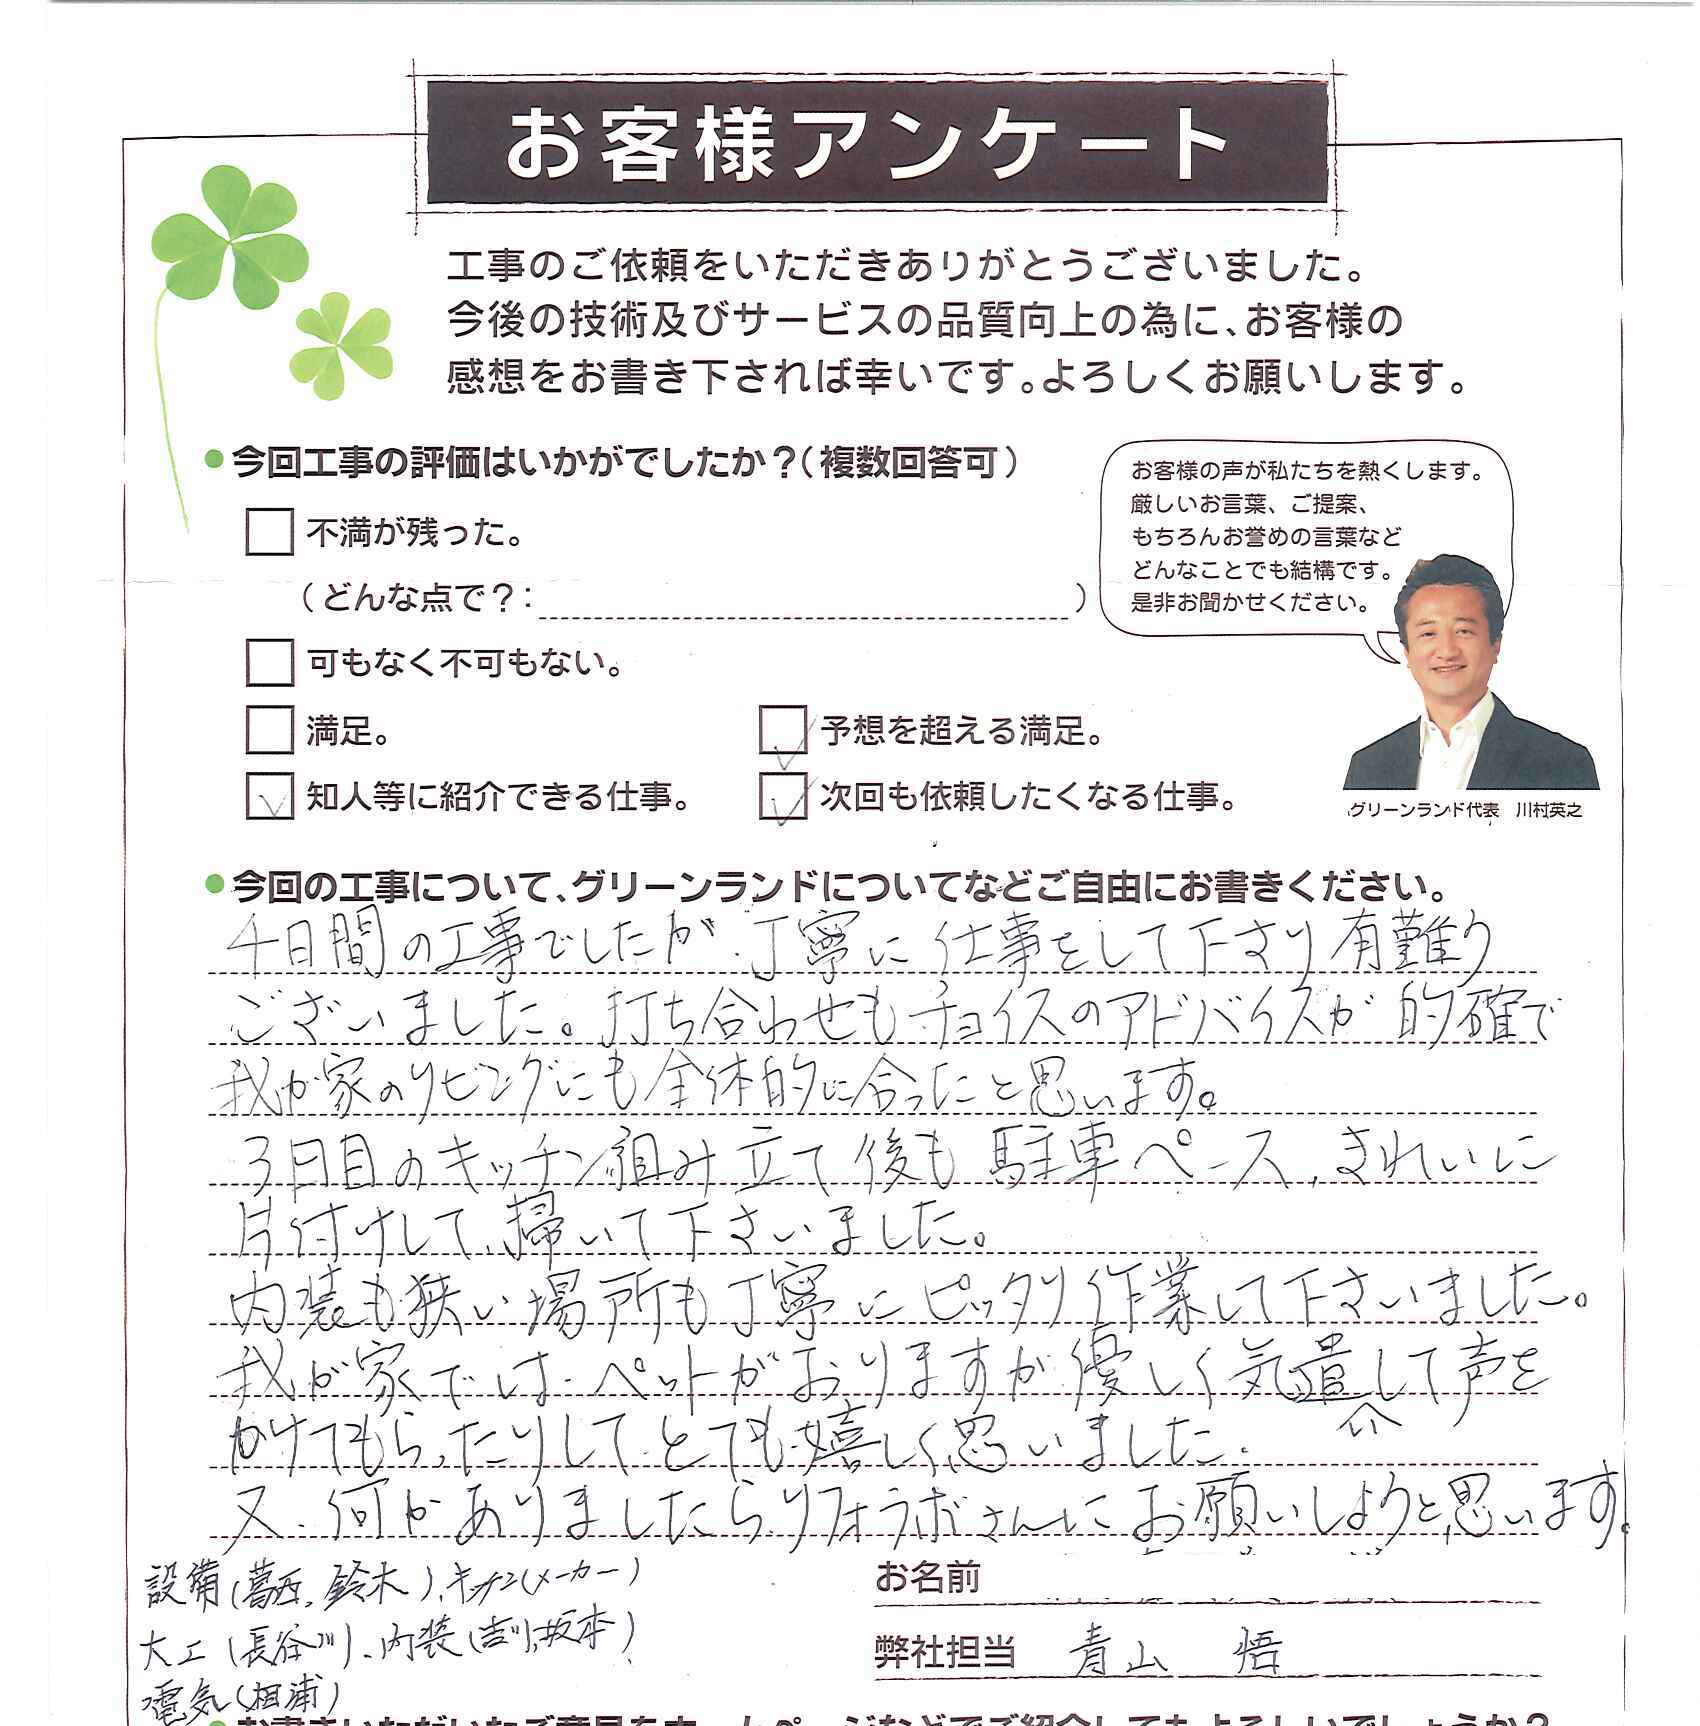 お客様アンケート
工事のご依頼をいただきありがとうございました。
今後の技術及びサービスの品質向上の為に、お客様の
感想をお書き下されば幸いです。よろしくお願いします。
●今回工事の評価はいかがでしたか?(複数回答可)
不満が残った。
(どんな点で?: )
可もなく不可もない。
満足。
予想を超える満足。
知人等に紹介できる仕事。
次回も依頼したくなる仕事。
お客様の声が私たちを熱くします。
厳しいお言葉、ご提案、
もちろんお誉めの言葉など
どんなことでも結構です。
是非お聞かせください。
グリーンランド代表 川村英之
●今回の工事について、グリーンランドについてなどご自由にお書きください。
4日間の工事でしたが、丁寧に仕事をして下さり有難う
ございました。打ち合わせもチョイスのアドバイスが的確で
我が家のリビングにも全体的に合ったと思います。
3日目のキッチン組み立て後も駐車ペース、きれいに
片付けして、掃いて下さいました。
内装も狭い場所も丁寧にピッタリ作業して下さいました。
我が家では、ペットがおりますが優しく気遣いして声を
かけてもらったりして、とても嬉しく思いました。
又、何かありましたらリフォラボさんにお願いしようと思います。
設備(葛西、鈴木)、キッチン(メーカー)
大工(長谷川)、内装(吉川、坂本)
電気(相浦)
お名前
弊社担当 青山 悟
●お書きいただいたご意見をホームページなどでご紹介してもよろしいでしょうか?